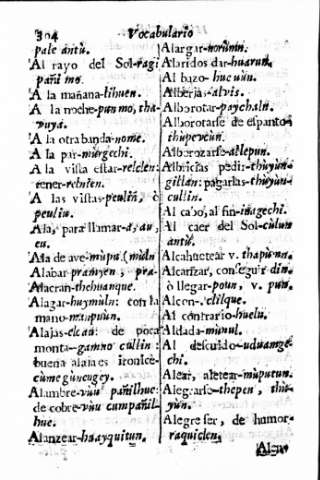 304 Vocabulario
pale antù.
Al rayo del Sol-ragi
pañi mo.
A la mañana-lihuen.
A la noche-pun mo, tha-
vuya.
A la otra banda-nome.
A la par-mùrgechi.
A la vista estar-relelen:
tener-relnten.
A las vistas-peuliñ, è
peuliu.
Ala, para llamar-à, au,
eu.
Ala de ave-mùpu (mùln
Alabar-pramyen, pra-
Alacran-thehuanque.
Alagar-huymùln: con la
mano-mañpuùn.
Alajas-elcaù: de poca
monta-gamno cullin:
buena alaja es ironicè-
cùme gùnengey.
Alambre-vùu pañilhue:
de cobre-vùu cumpañil-
hue.
Alanzear-huayquitun.
Alargar-norùmn.
Alaridos dar-huarun.
Al bazo-hucuùn.
Alberjas-alvis.
Alborotar-paychaln.
Alborotarse de espanto-
thùpevcùn.
Alborozarse-allepun.
Albricias pedir-thùyùn-
gillan: pagarlas-thùyùn-
cullin.
Al cabo, al fin-iñagechi.
Al caer del Sol-cùlun
antù.
Alcahuetear v. thapùma.
Alcanzar, conseguir-din.
ò llegar-poun, v. pun.
Alcon-clilque.
Al contrario-huelu.
Aldada-mùnul.
Al descuido-uduamge-
chi.
Alear, aletear-mùputun.
Alegrarse-thepen, thù-
yùn.
Alegre ser, de humor-
raquiclen.
Aleu-